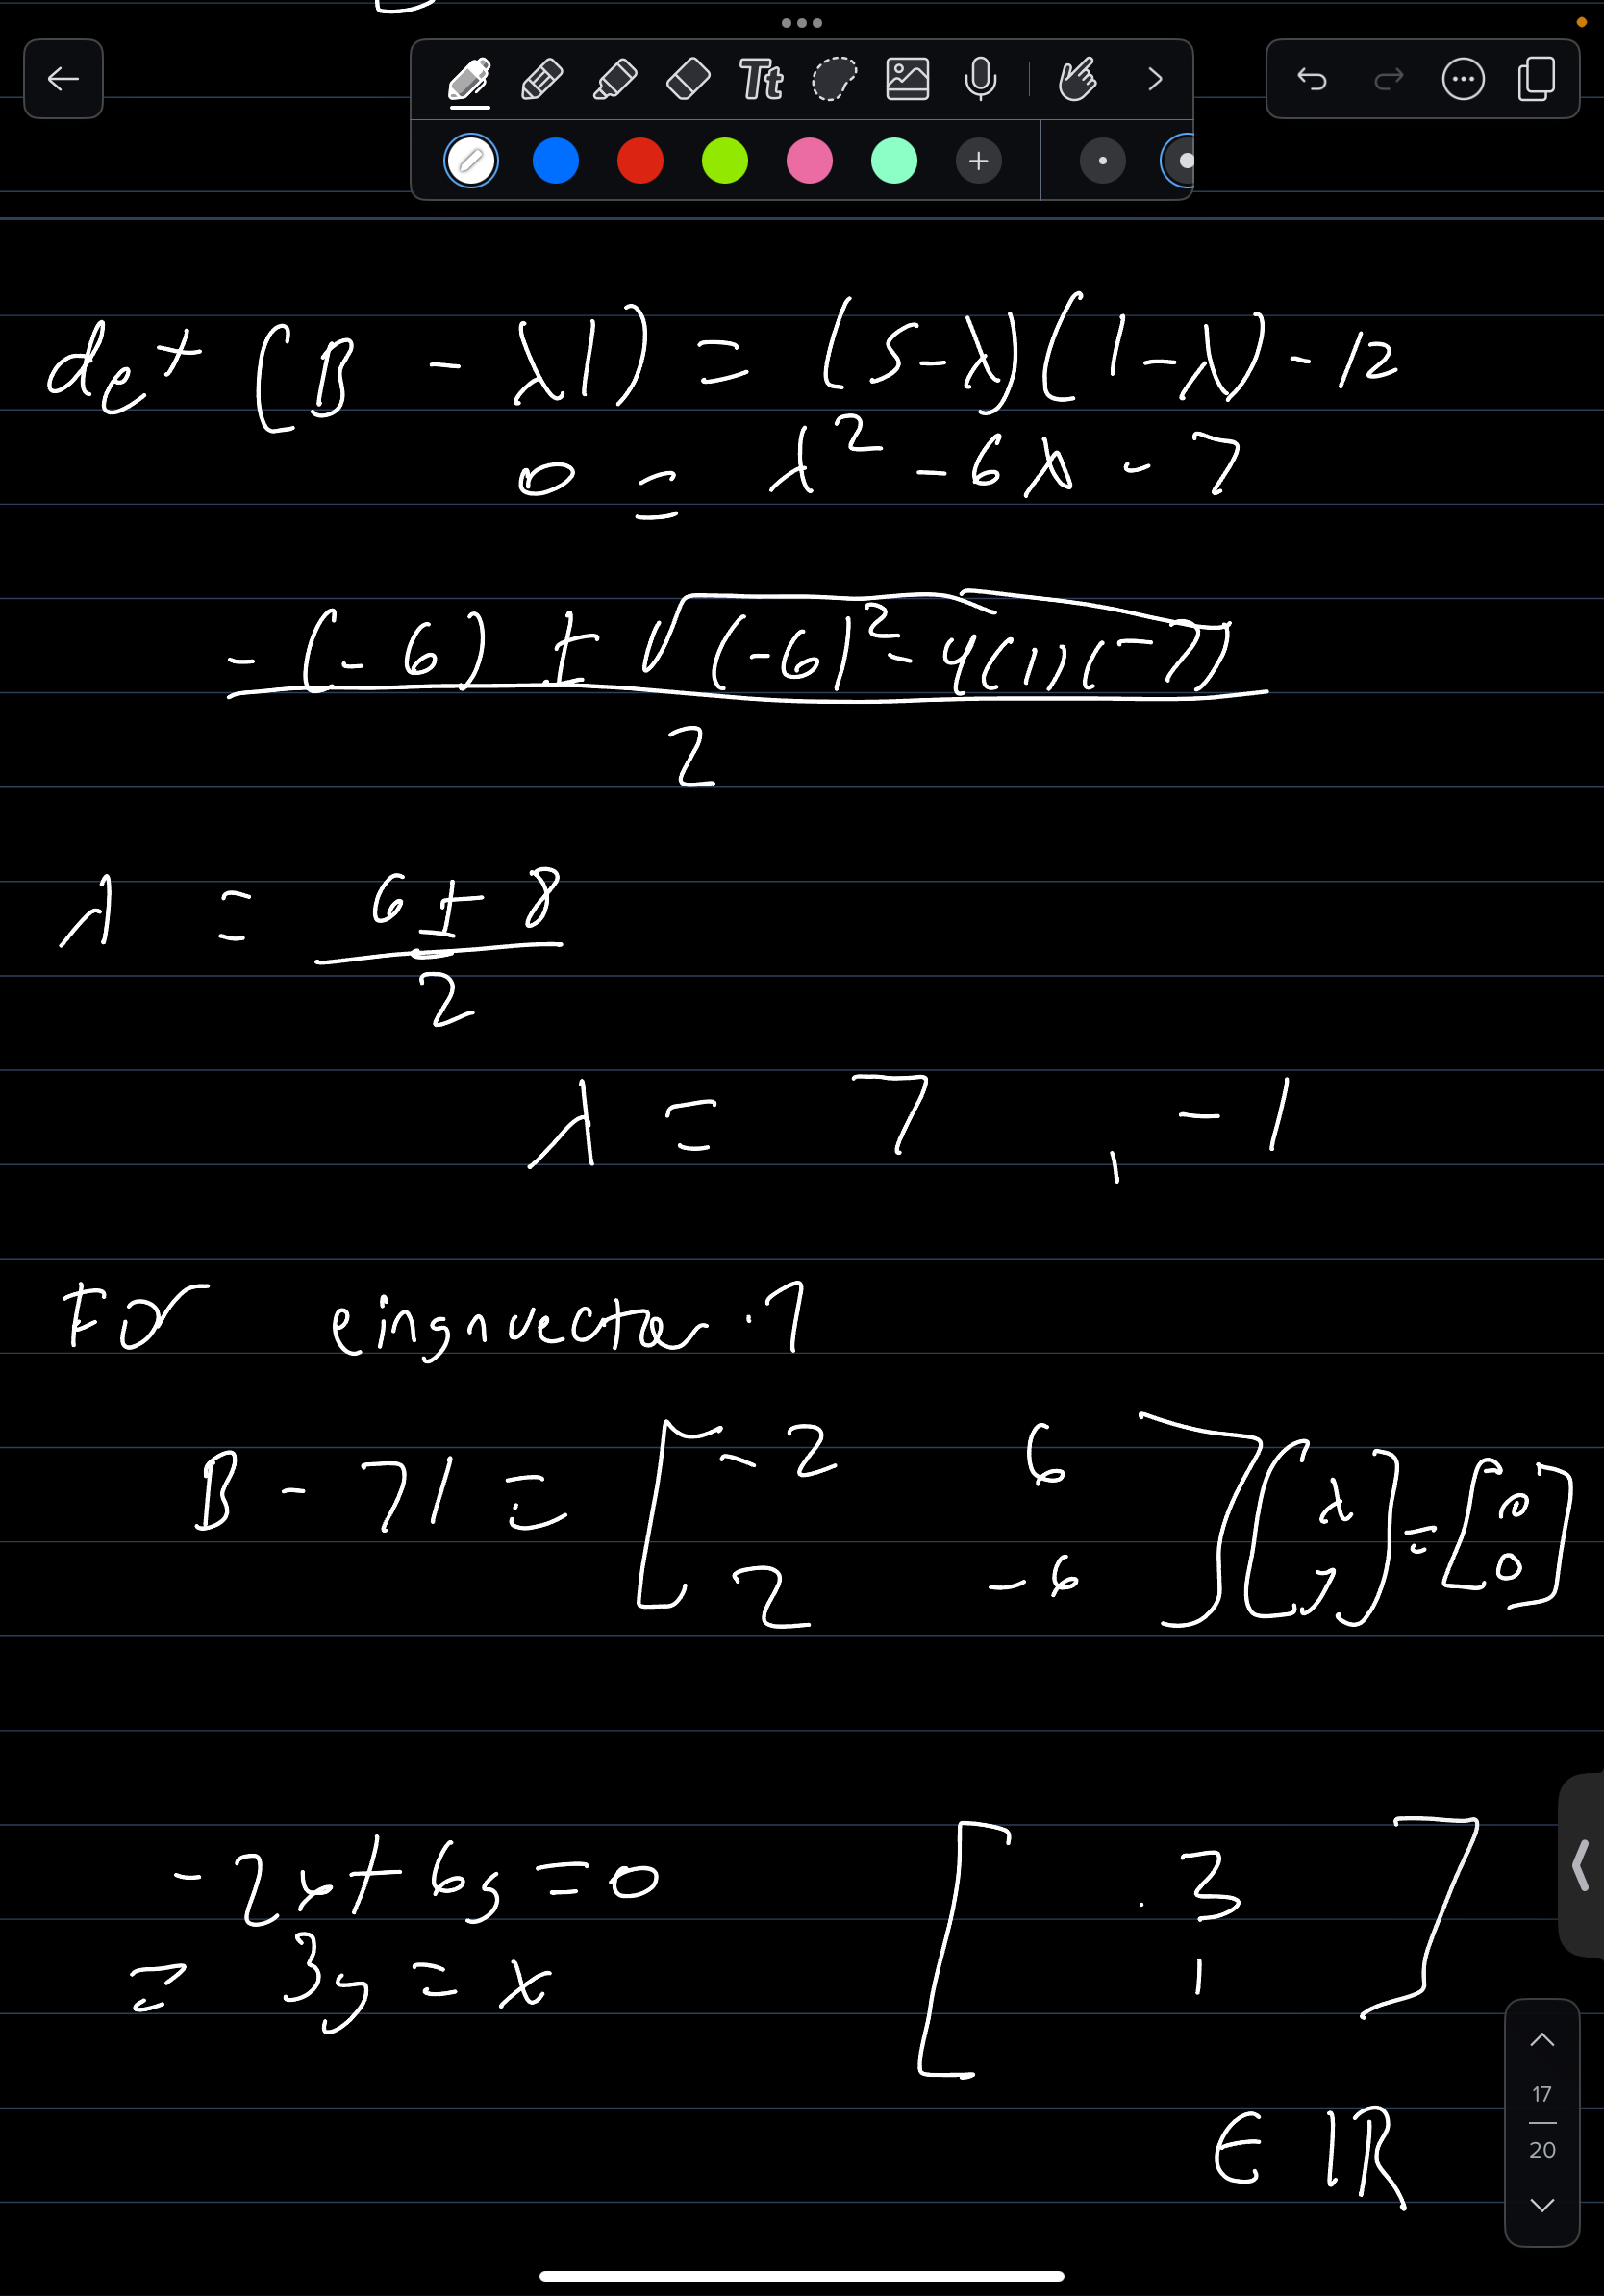 Tt
det (B - λI) = (5-λ)(1-λ) - 12
0 = λ² - 6λ - 7
-(-6) ± √(-6)² - 4(1)(-7)
2
λ = 6 ± 8
2
λ = 7 , -1
For eingnvector 7
B - 7I = [-2 6] [x] = [0]
[2 -6] [y] [0]
-2x + 6y = 0 [3]
= 3y = x [1]
∈ IR
17
20